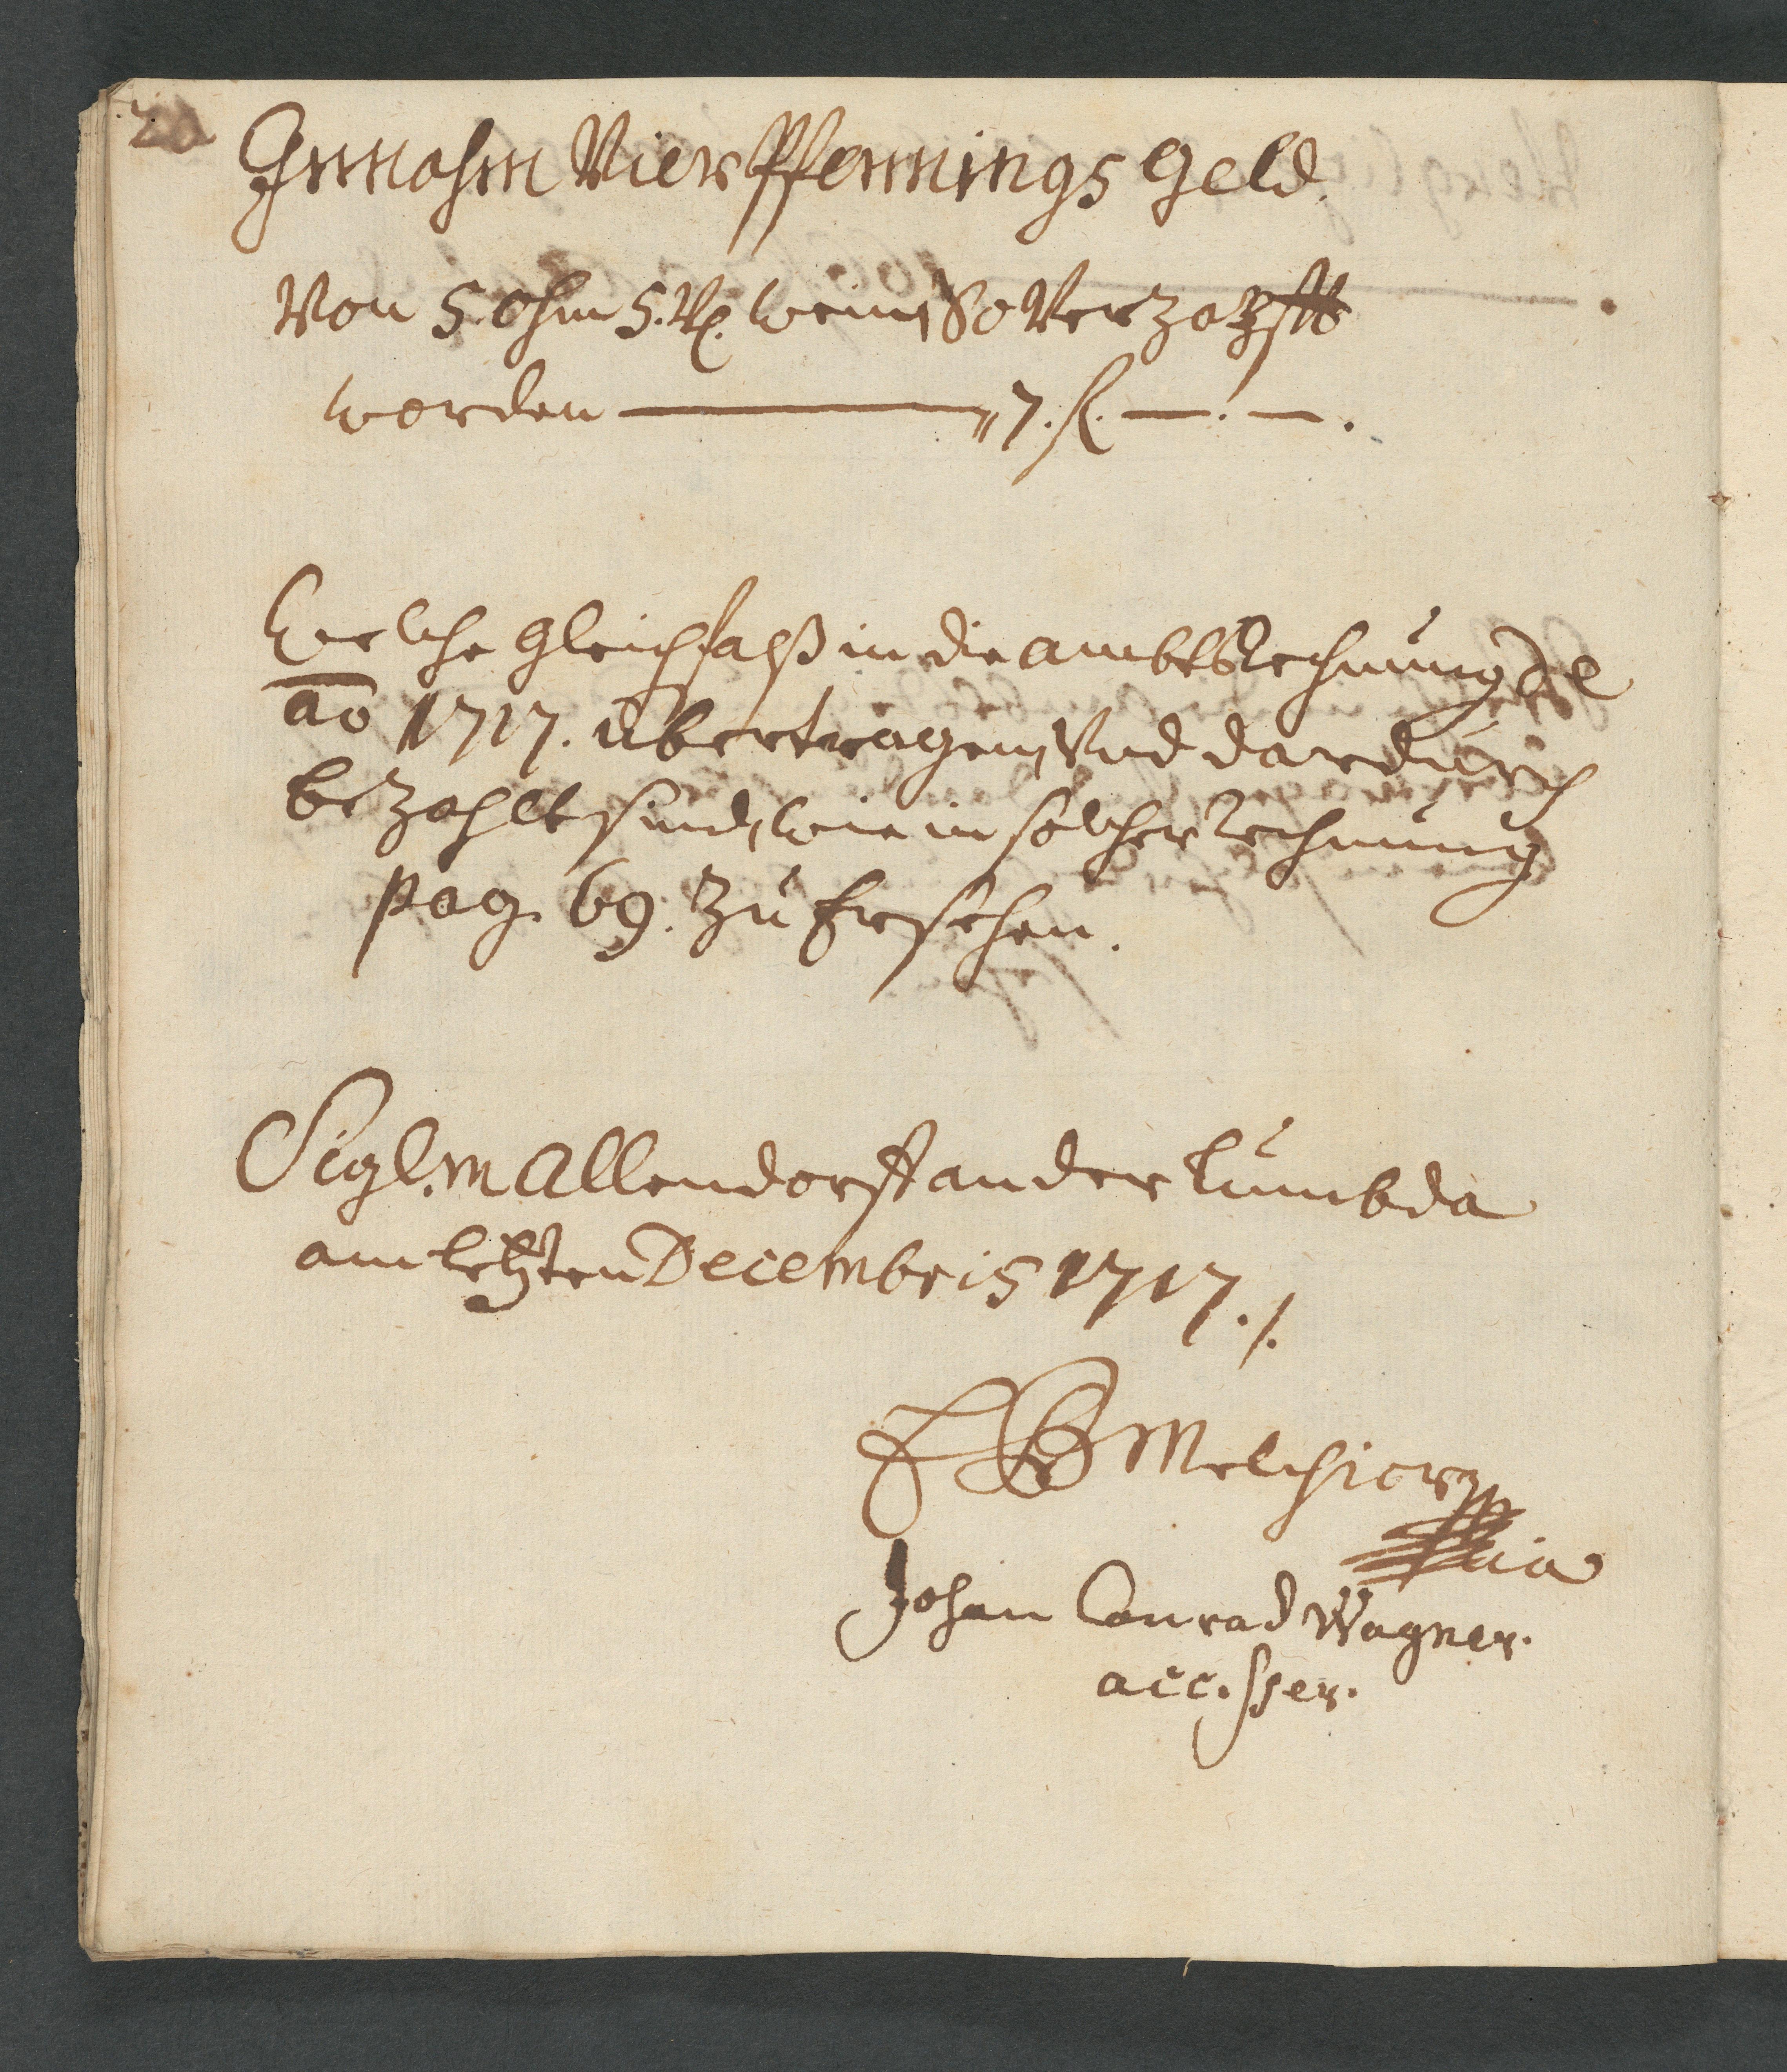 20
Einnahm Vier Pfennings Geld.
Von 5. Ohm 5. V. wein, So Verzapfft
worden ———— 7. fl. —. —.
Welche gleichfalß in die ambtsRechnung de
ao 1717. übertragen, Vnd dardurch
bezahlt sind, wie in solcher Rechnung
pag. 69. zu Ersehen.
Sigl. in Allendorff an der Lumbda
am letzten Decembris 1717./.
Melchior
Johan Conrad Wagner.
acciser.